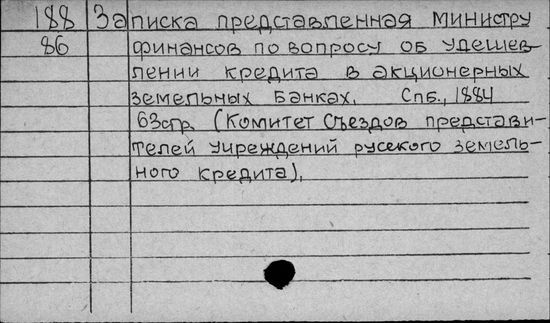 188 Записка представленная министру
86 финансов по вопросу об удешев-
лении кредита в акционерных
земельных банках. Спб., 1884
63стр. (Комитет съездов представи-
телей учреждений русского земель-
ного кредита).